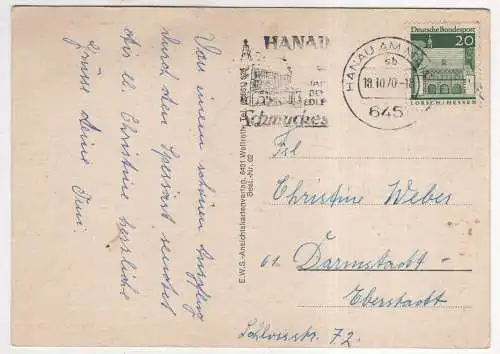 Von einem schönen Ausflug
durch den Spessart sendet
dir u. Christine herzliche
Grüsse deine
E.W.S.-Ansichtskartenverlag, 6401
Best.-Nr. 62
HANAU
STADT
DES
EDLEN
Schmuckes
HANAU AM MAIN
sb
18.10.70-18
645
Deutsche Bundespost
20
LORSCH/HESSEN
Frl
Christine Weber
61 Darmstadt-
Eberstadt
Schlossstr. 72.